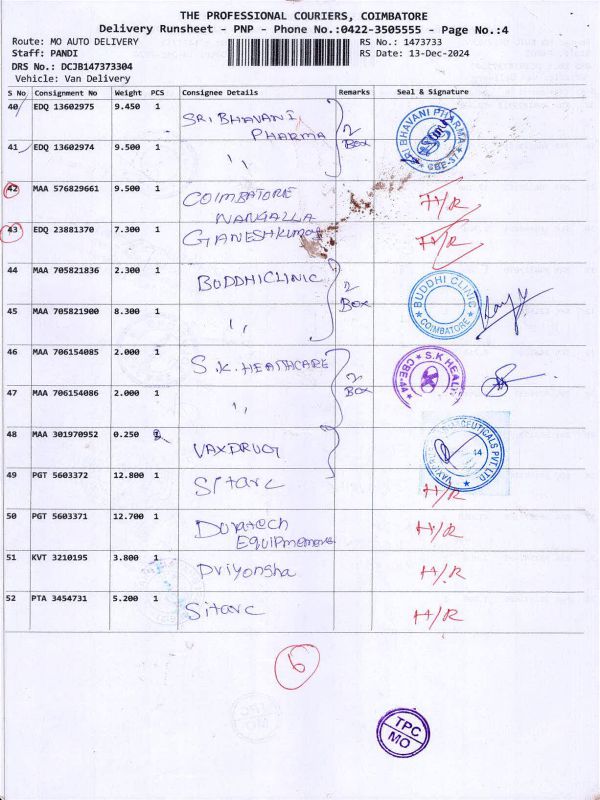 THE PROFESSIONAL COURIERS, COIMBATORE
Delivery Runsheet - PNP - Phone No.:0422-3505555 - Page No.:4
Route: MO AUTO DELIVERY
RS No.: 1473733
Staff: PANDI
RS Date: 13-Dec-2024
DRS No.: DCJB147373304
Vehicle: Van Delivery
S No Consignment No Weight PCS Consignee Details Remarks Seal & Signature
40 EDQ 13602975 9.450 1 SRI BHAVANI PHARMA 2 Box SRI BHAVANI PHARMA CBE-37
41 EDQ 13602974 9.500 1 ,,
42 MAA 576829661 9.500 1 COIMBATORE MANGALLA H/R
43 EDQ 23881370 7.300 1 GANESHKUMAR H/R
44 MAA 705821836 2.300 1 BUDDHICLINIC 2 Box BUDDHI CLINIC COIMBATORE
45 MAA 705821900 8.300 1 ,,
46 MAA 706154085 2.000 1 S.K. HEATHCARE 2 Box S.K HEAL CBE-44
47 MAA 706154086 2.000 1 ,,
48 MAA 301970952 0.250 VAXDRUG CEUTICALS PVT. LTD.
49 PGT 5603372 12.800 1 Sitarc H/R
50 PGT 5603371 12.700 1 H/R
51 KVT 3210195 3.800 1 Priyonsha H/R
52 PTA 3454731 5.200 1 Sitarc H/R
6
TPC
MO
TPC
MO